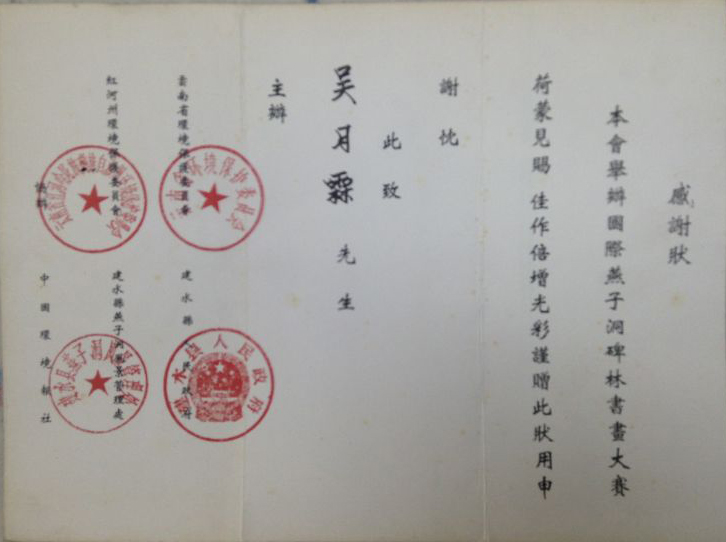 感謝狀
本會舉辦國際燕子洞碑林書畫大賽
荷蒙見賜 佳作倍增光彩謹贈此狀用申
謝忱
此致
吴月霖 先生
主辦
雲南省環境保護委員會
建水縣人民政府
紅河州環境保護委員會
建水縣燕子洞風景管理處
協辦
中國環境報社
建水县人民政府